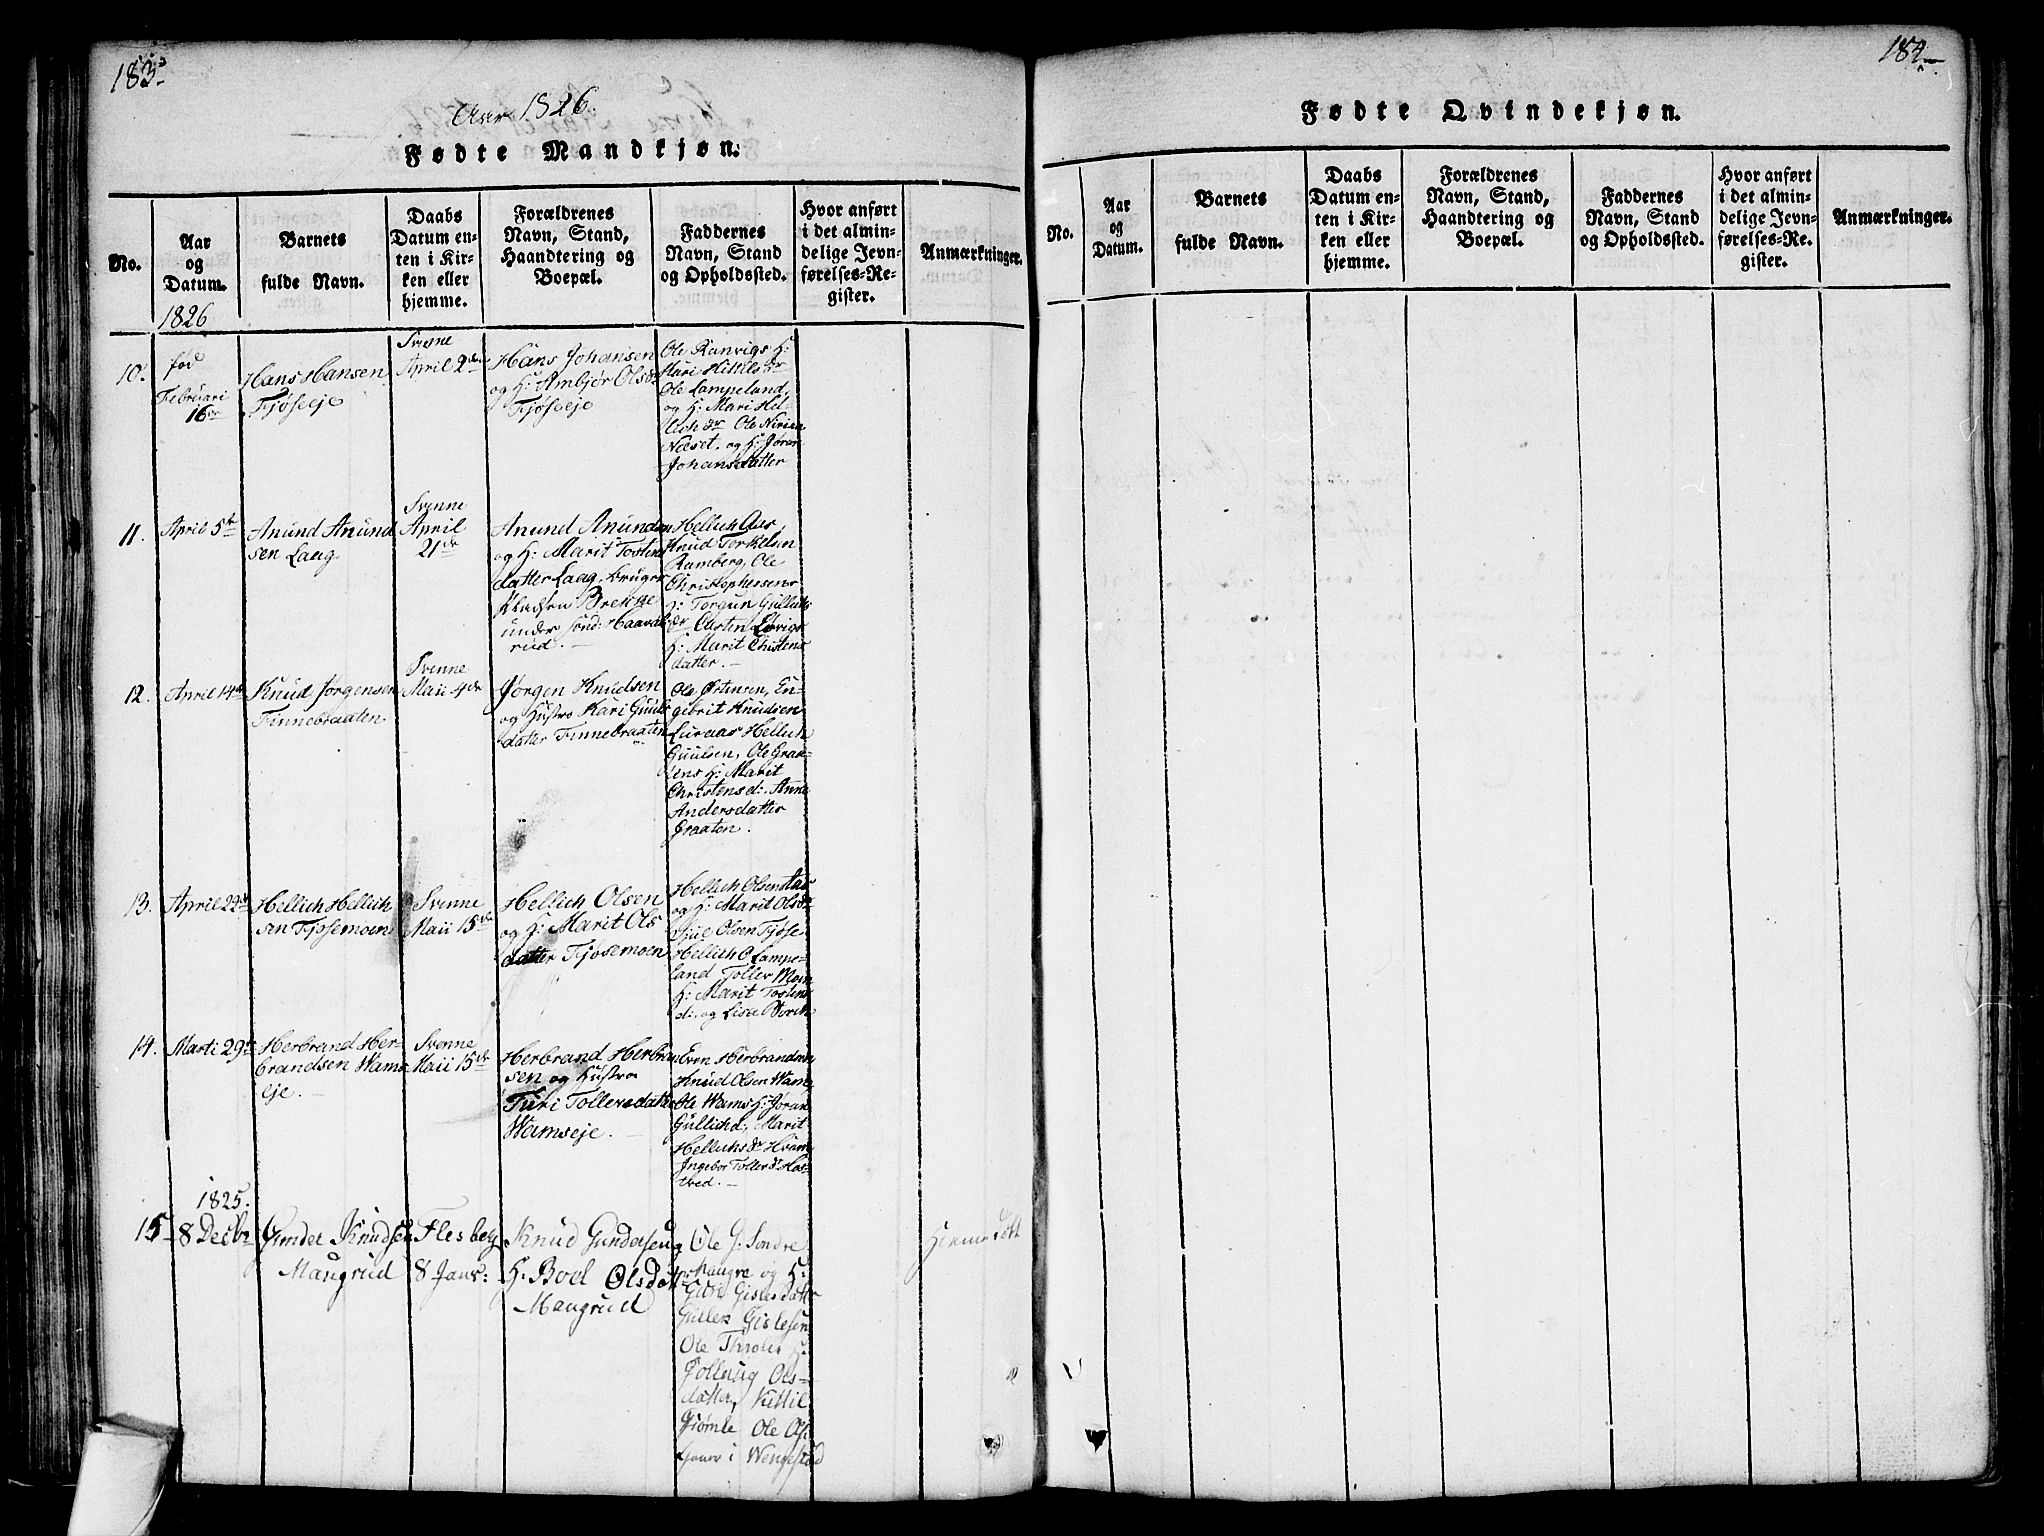 183
Aar 1826.
Fødte Mandkjøn.
No.
Aar
og
Datum.
Barnets
fulde Navn.
Daabs
Datum en-
ten i Kir-
ken eller
hjemme.
Forældrenes
Navn, Stand,
Haandtering og
Boepæl.
Faddernes
Navn, Stand
og Opholdssted.
Hvor anført
i det almin-
delige Jevn-
førelses-Re-
gister.
Anmærkninger.
1826
10.
fød
Februari
16de
Hans Hansen
Fjøseeje
Svenne
April 2den
Hans Johansen
og H: Ambjør Olsdr
Fjøseeje
Ole Ranvigs H:
Kari Kittilsdr
Ole Lampeland,
og H: Mari Hel-
lichdr Ole
Næset, og H: Jøran
Johansdatter
11.
April 5te
Anund Anund
sen Laag.
Svenne
April
21de
Anund Anundsen
og H: Marit Tostens
datter Laag, bruger
Pladsen Brekke
under sönd: Haavels
rud.
Hellich Aas,
Knud Torkelsen
Ramberg, Ole
Christophersens
H: Torgun Gullichs
dr Olsten
H: Marit Christens
datter.
12.
April 14de
Knud Jørgensen
Finnebraaten
Svenne
Maii 4de
Jørgen Knudsen
og Hustro Kari Guuls
datter Finnebraaten
Ole Østensen, En-
gebrit Knudsen
Luraas Hellich
Guulsen, Ole Braa-
tens H: Marit
Christensd: Anne
Andersdatter
Braaten.
13.
April 29de
Hellich Hellich
sen Fjøsemoen
Svenne
Maii 15de
Hellich Olsen
og H: Marit Ols
datter Fjøsemoen
Hellich Olsen Aas
og H: Marit Olsdr
Juul Olsen Fjøse
Hellich O. Lampe-
land Toller Moen
H: Marit Tostens
d: og Lisa
14.
Marti 29de
Herbrand Her-
brandsen Wams
eje.
Svenne
Maii 15de
Herbrand Herbran
sen og Hustro
Turi Tollersdatter
Wamseje.
Even Herbrandsen
Knud Olsen Wams
Ole Wams H: Jøran
Gullichd, Marit
Hellichsdr Hvam
Ingebor Tollersdr Has-
tved.
1825.
15
8 Decbr
Gunder Knudsen
Maugrud
Flesberg
8 Janr:
Knud Gundersen og
H: Boel Olsdatter
Maugrud
Ole G: Søndre
Maugre og H:
Guri Gislesdatter
Gullek Gislesen
Ole H:
Gollaug Ols-
datter, Kittil
Tjømle Ole Ols
i Wengestad
Hiemmedøbt
184
Fødte Qvindekjøn.
No.
Aar
og
Datum.
Barnets
fulde Navn.
Daabs
Datum en-
ten i Kir-
ken eller
hjemme.
Forældrenes
Navn, Stand,
Haandtering og
Boepæl.
Faddernes
Navn, Stand
og Opholdssted.
Hvor anført
i det almin-
delige Jevn-
førelses-Re-
gister.
Anmærkninger.